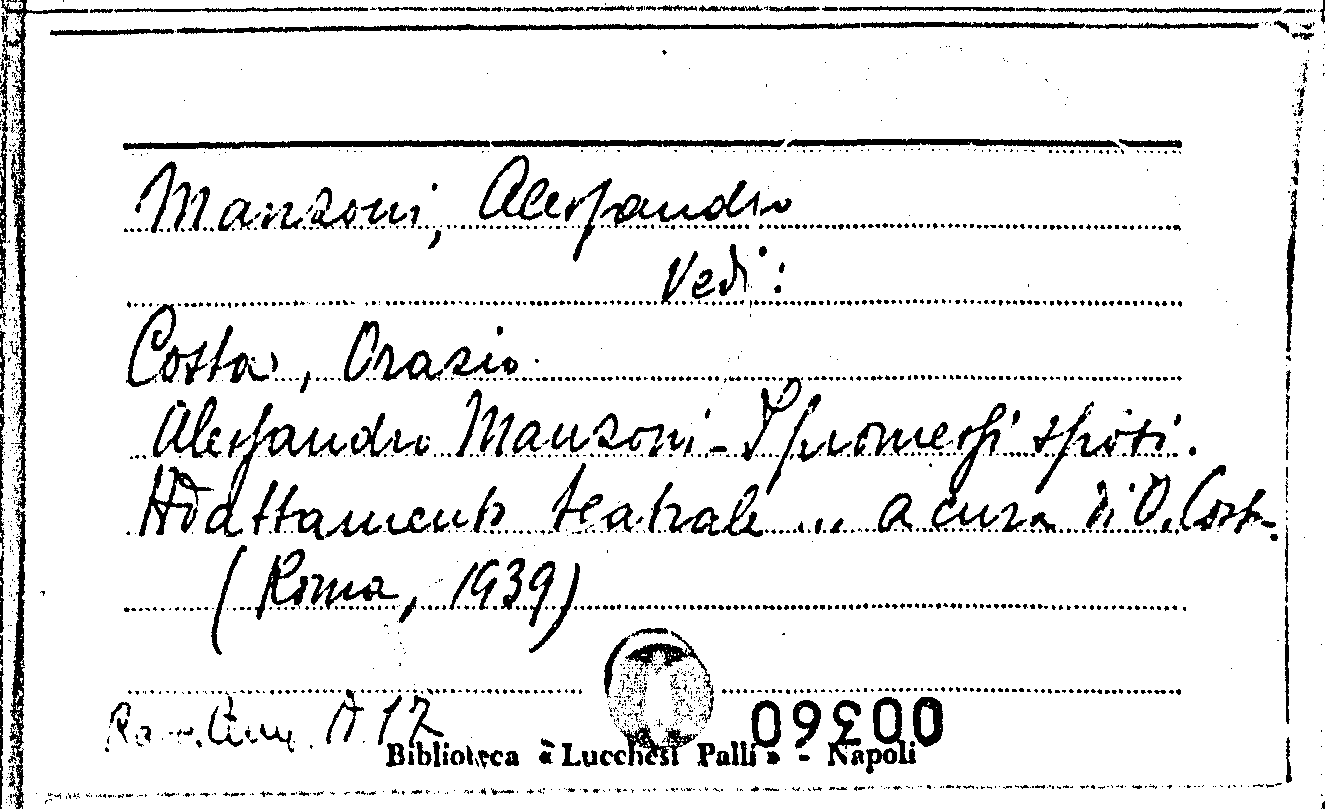 Manzoni, Alessandro
Vedi:
Costa, Orazio.
Alessandro Manzoni - I promessi sposi.
Adattamento teatrale ... a cura di O. Costa.
(Roma, 1939)
A 12
00360
Biblioteca « Lucchesi Palli » - Napoli